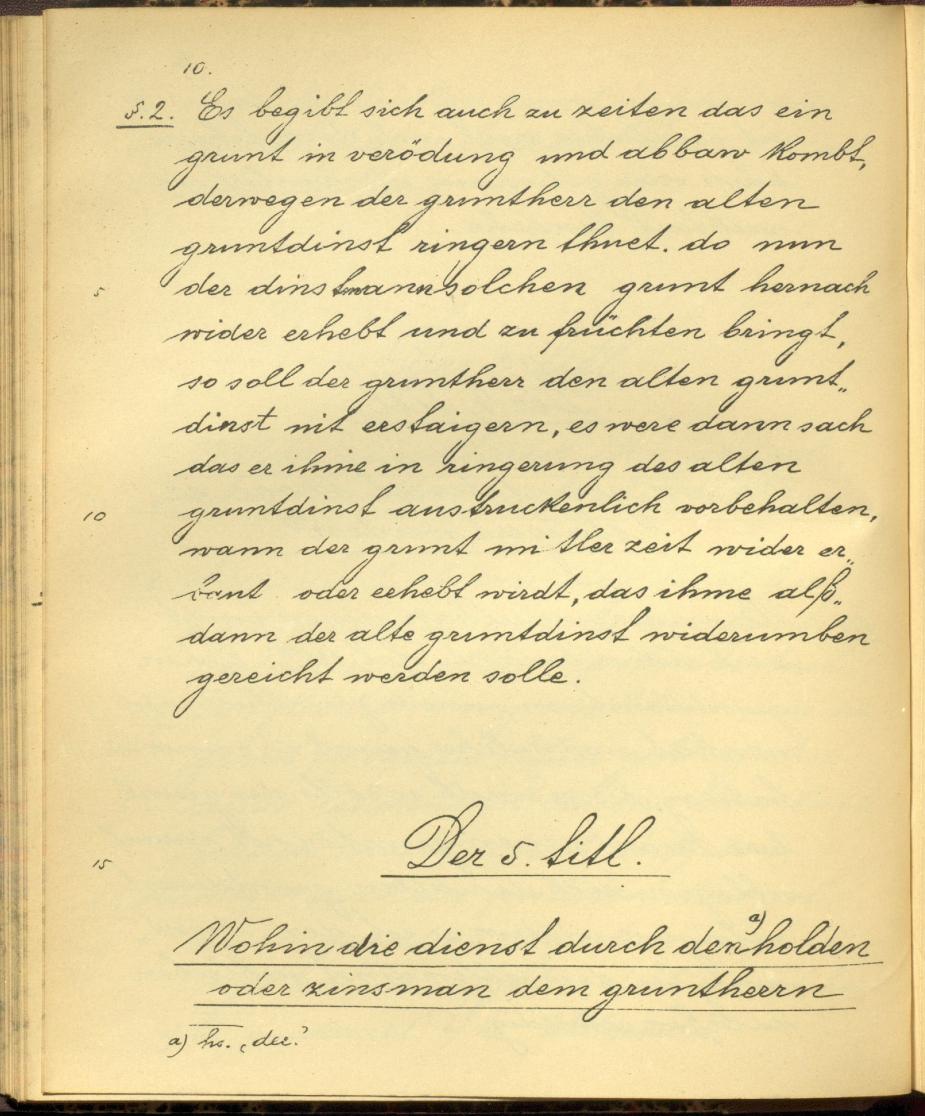 10.
§.2. Es begibt sich auch zu zeiten das ein
grunt in verödung und abbaw kombt,
derwegen der gruntherr den alten
gruntdinst ringern thuet. do nun
5 der dinstmann solchen grunt hernach
wider erhebt und zu früchten bringt,
so soll der gruntherr den alten grunt„
dinst nit erstaigern, es were dann sach
das er ihme in ringerung des alten
10 gruntdinst austruckenlich vorbehalten,
wann der grunt mitler zeit wider er„
baut oder erhebt wirdt, das ihme alß„
dann der alte gruntdinst widerumben
gereicht werden solle.
15 Der 5. titl.
Wohin die dienst durch den a) holden
oder zinsman dem gruntherrn
a) hs. „der."